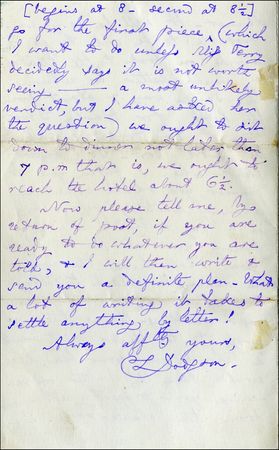 [begins at 8 – second at 8½]
go for the first piece, (which
I want to do unless Miss Terry
decidedly says it is not worth
seeing — a most unlikely
verdict, but I have asked her
the question) we ought to sit
down to dinner not later than
7 p.m that is, we ought to
reach the hotel about 6½.
Now please tell me, by
return of post, if you are
ready to do whatever you are
told, & I will then write &
send you a definite plan – What
a lot of writing it takes to
settle anything by letter!
Always affly yours,
CLDodgson.